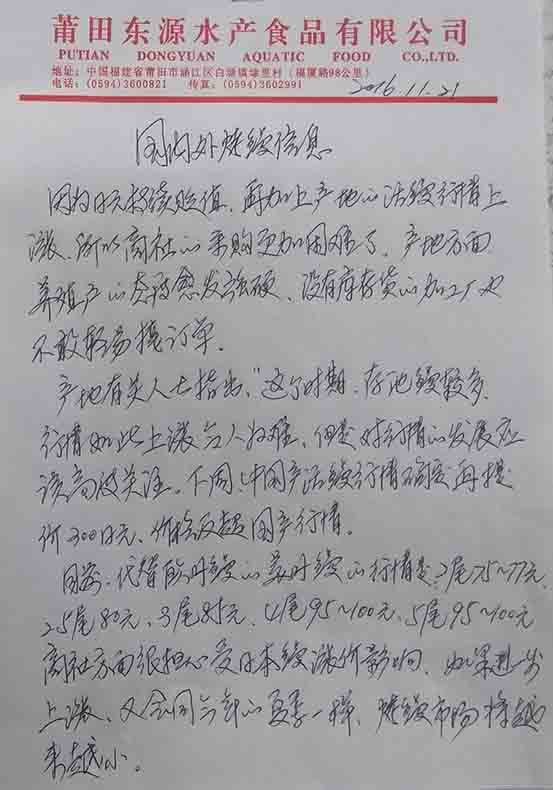 莆田东源水产食品有限公司
PUTIAN DONGYUAN AQUATIC FOOD CO.,LTD.
地址：中国福建省莆田市涵江区白塘镇埭里村（福厦路98公里）
电话：(0594) 3600821 传真：(0594) 3602991
2016.11.21
国内外烤鳗信息
因为日元持续贬值、再加上产地的活鳗行情上
涨、所以商社的采购更加困难了。产地方面
养殖户的态度愈发强硬、没有库存货的加工厂也
不敢轻易接订单。
产地有关人士指出、"这个时期、存池鳗较多、
行情如此上涨令人为难、但是对行情的发展应
该高度关注。下周、中国产活鳗行情确定再提
价300日元、价格反超国产行情。
目前、代替欧洲鳗的美洲鳗的行情是：2尾75~77元、
2.5尾80元、3尾85元、4尾95~100元、5尾95~100元
商社方面很担心受日本鳗涨价影响、如果进一步
上涨、又会同今年的夏季一样、烤鳗市场将越
来越小。